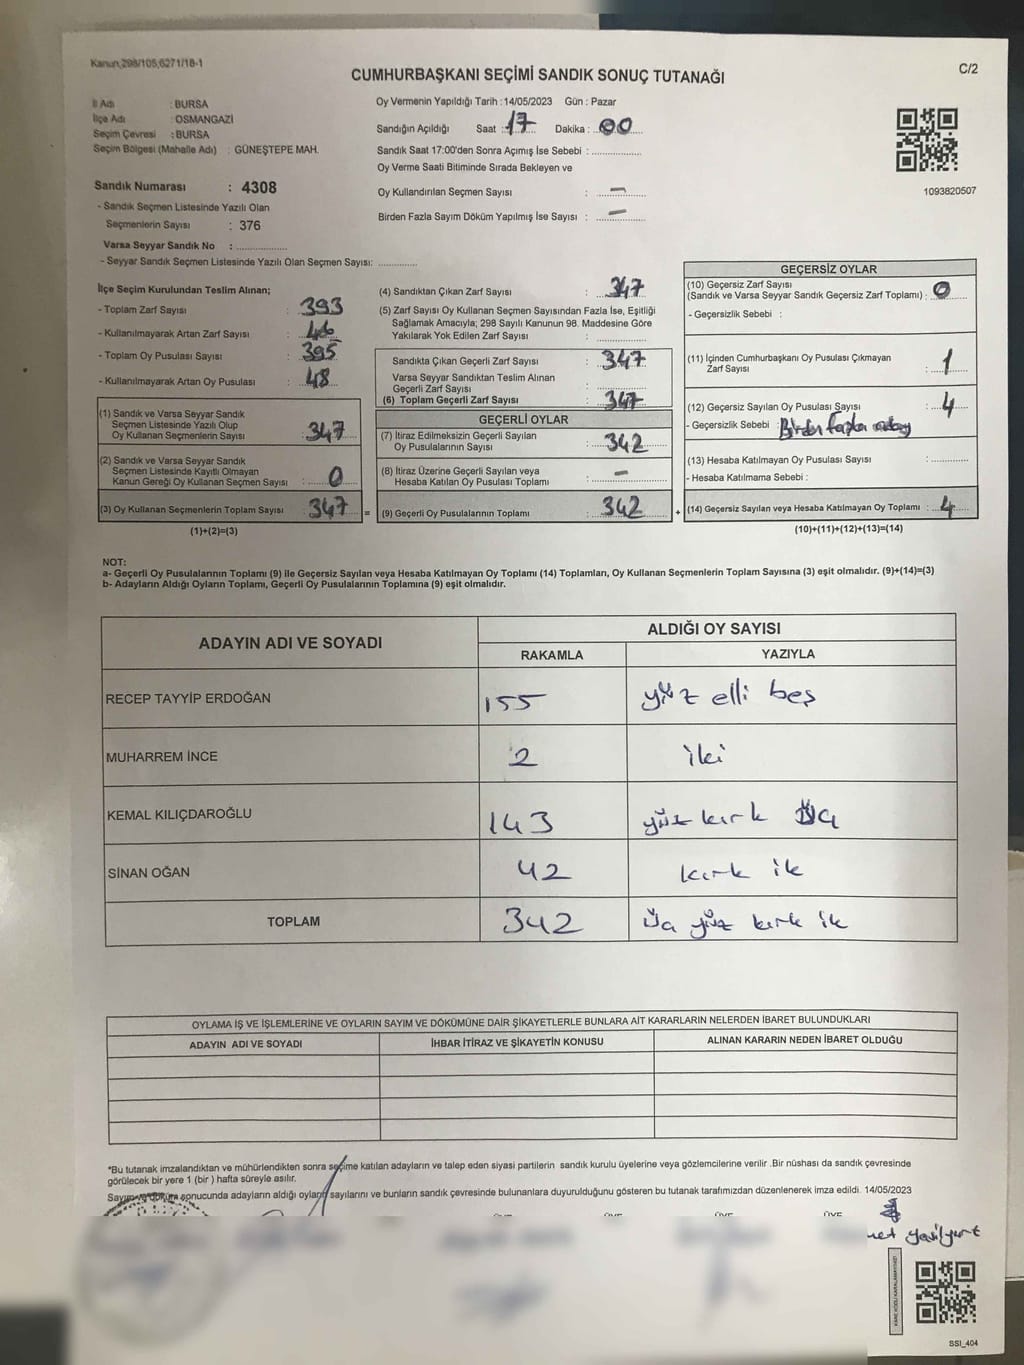 Kanun,298/105,6271/18-1
C/2
CUMHURBAŞKANI SEÇİMİ SANDIK SONUÇ TUTANAĞI
İl Adı : BURSA
İlçe Adı : OSMANGAZİ
Seçim Çevresi : BURSA
Seçim Bölgesi (Mahalle Adı) : GÜNEŞTEPE MAH.
Sandık Numarası : 4308
- Sandık Seçmen Listesinde Yazılı Olan
Seçmenlerin Sayısı : 376
Varsa Seyyar Sandık No : ..................
- Seyyar Sandık Seçmen Listesinde Yazılı Olan Seçmen Sayısı: ..............
Oy Vermenin Yapıldığı Tarih : 14/05/2023 Gün : Pazar
Sandığın Açıldığı Saat : 17 Dakika : 00
Sandık Saat 17:00'den Sonra Açımış İse Sebebi : ..................
Oy Verme Saati Bitiminde Sırada Bekleyen ve
Oy Kullandırılan Seçmen Sayısı : —
Birden Fazla Sayım Döküm Yapılmış İse Sayısı : —
1093820507
İlçe Seçim Kurulundan Teslim Alınan;
- Toplam Zarf Sayısı : 393
- Kullanılmayarak Artan Zarf Sayısı : 46
- Toplam Oy Pusulası Sayısı : 395
- Kullanılmayarak Artan Oy Pusulası : 48
(1) Sandık ve Varsa Seyyar Sandık
Seçmen Listesinde Yazılı Olup
Oy Kullanan Seçmenlerin Sayısı : 347
(2) Sandık ve Varsa Seyyar Sandık
Seçmen Listesinde Kayıtlı Olmayan
Kanun Gereği Oy Kullanan Seçmen Sayısı : 0
(3) Oy Kullanan Seçmenlerin Toplam Sayısı : 347
(1)+(2)=(3)
(4) Sandıktan Çıkan Zarf Sayısı : 347
(5) Zarf Sayısı Oy Kullanan Seçmen Sayısından Fazla İse, Eşitliği
Sağlamak Amacıyla; 298 Sayılı Kanunun 98. Maddesine Göre
Yakılarak Yok Edilen Zarf Sayısı : ..................
Sandıkta Çıkan Geçerli Zarf Sayısı : 347
Varsa Seyyar Sandıktan Teslim Alınan
Geçerli Zarf Sayısı : ..................
(6) Toplam Geçerli Zarf Sayısı : 347
GEÇERLİ OYLAR
(7) İtiraz Edilmeksizin Geçerli Sayılan
Oy Pusulalarının Sayısı : 342
(8) İtiraz Üzerine Geçerli Sayılan veya
Hesaba Katılan Oy Pusulası Toplamı : —
= (9) Geçerli Oy Pusulalarının Toplamı : 342
GEÇERSİZ OYLAR
(10) Geçersiz Zarf Sayısı
(Sandık ve Varsa Seyyar Sandık Geçersiz Zarf Toplamı) : 0
- Geçersizlik Sebebi :
(11) İçinden Cumhurbaşkanı Oy Pusulası Çıkmayan
Zarf Sayısı : 1
(12) Geçersiz Sayılan Oy Pusulası Sayısı : 4
- Geçersizlik Sebebi : Birden fazla aday
(13) Hesaba Katılmayan Oy Pusulası Sayısı : ..............
- Hesaba Katılmama Sebebi :
+ (14) Geçersiz Sayılan veya Hesaba Katılmayan Oy Toplamı : 4
(10)+(11)+(12)+(13)=(14)
NOT:
a- Geçerli Oy Pusulalarının Toplamı (9) ile Geçersiz Sayılan veya Hesaba Katılmayan Oy Toplamı (14) Toplamları, Oy Kullanan Seçmenlerin Toplam Sayısına (3) eşit olmalıdır. (9)+(14)=(3)
b- Adayların Aldığı Oyların Toplamı, Geçerli Oy Pusulalarının Toplamına (9) eşit olmalıdır.
ADAYIN ADI VE SOYADI ALDIĞI OY SAYISI
RAKAMLA YAZIYLA
RECEP TAYYİP ERDOĞAN 155 yüz elli beş
MUHARREM İNCE 2 iki
KEMAL KILIÇDAROĞLU 143 yüz kırk üç
SİNAN OĞAN 42 kırk ik
TOPLAM 342 Üç yüz kırk ik
OYLAMA İŞ VE İŞLEMLERİNE VE OYLARIN SAYIM VE DÖKÜMÜNE DAİR ŞİKAYETLERLE BUNLARA AİT KARARLARIN NELERDEN İBARET BULUNDUKLARI
ADAYIN ADI VE SOYADI İHBAR İTİRAZ VE ŞİKAYETİN KONUSU ALINAN KARARIN NEDEN İBARET OLDUĞU
*Bu tutanak imzalandıktan ve mühürlendikten sonra seçime katılan adayların ve talep eden siyasi partilerin sandık kurulu üyelerine veya gözlemcilerine verilir .Bir nüshası da sandık çevresinde
görülecek bir yere 1 (bir ) hafta süreyle asılır.
Sayım ve döküm sonucunda adayların aldığı oyların sayılarını ve bunların sandık çevresinde bulunanlara duyurulduğunu gösteren bu tutanak tarafımızdan düzenlenerek imza edildi. 14/05/2023
ÜYE ÜYE ÜYE ÜYE
Yeşilyurt
SSI_404